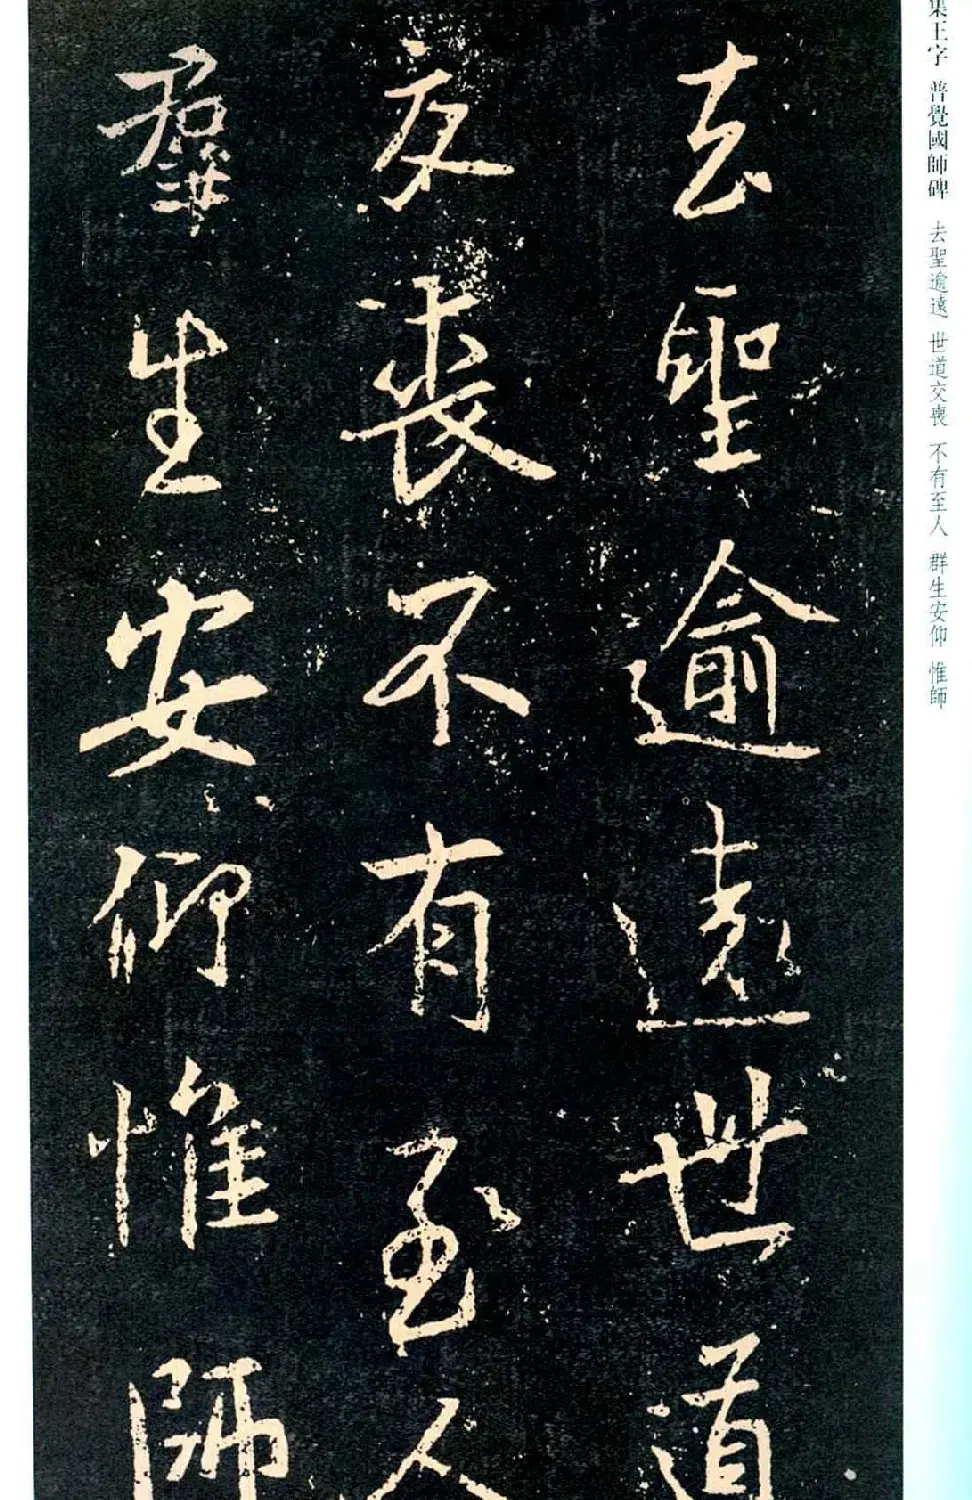 集王字 普覺國師碑 去聖逾遠 世道交喪 不有至人 群生安仰 惟師
去聖逾遠世道
交喪不有至人
群生安仰惟師